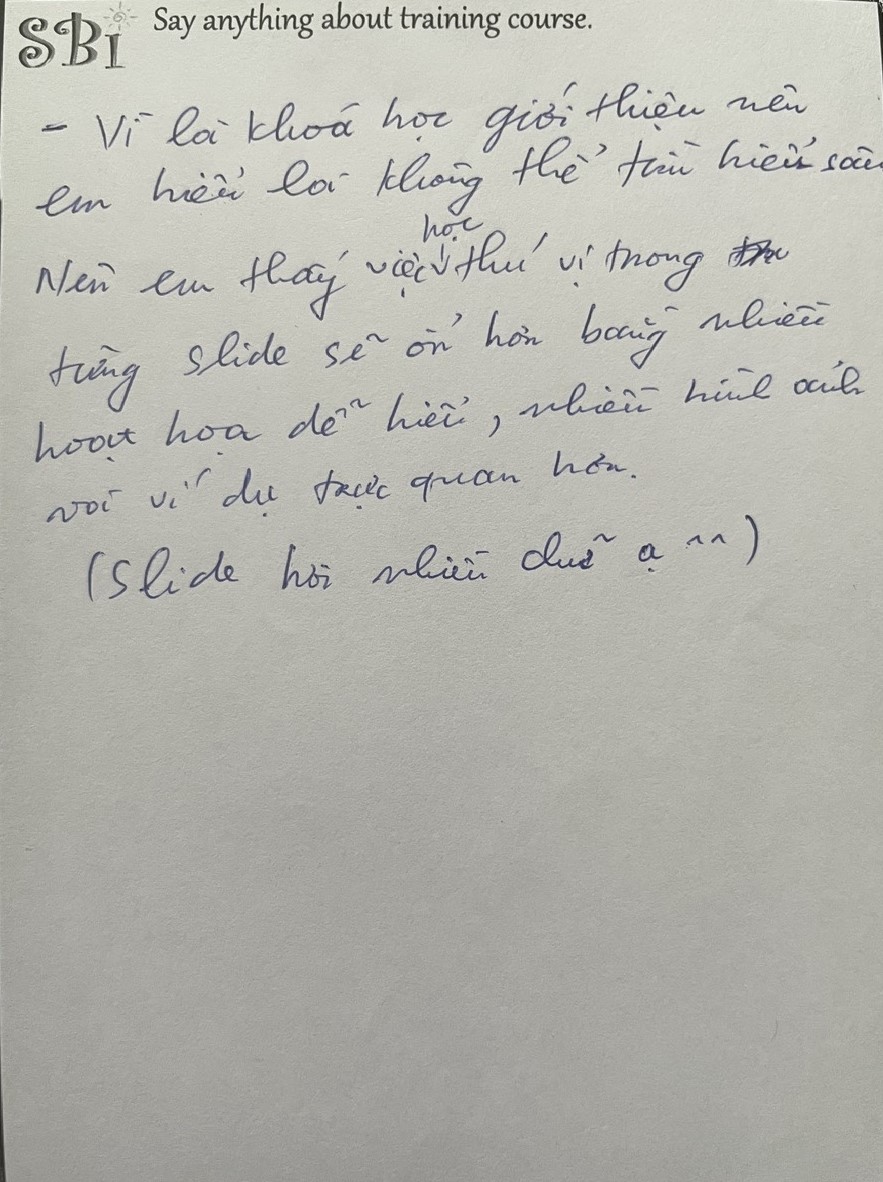 SBI Say anything about training course.
- Vì là khoá học giới thiệu nên
em hiểu là không thể tìm hiểu sâu
Nên em thấy việc học thú vị trong
từng slide sẽ ổn hơn bằng nhiều
hoạt hoạ dễ hiểu, nhiều hình ảnh
với ví dụ trực quan hơn.
(Slide hơi nhiều chữ ạ ^^)